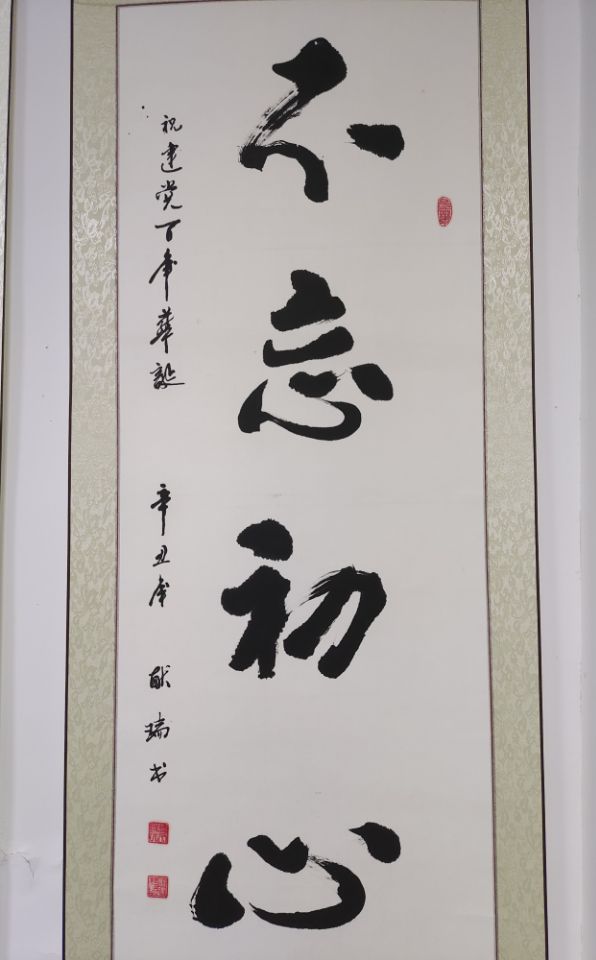 不忘初心
祝建党百年華誕
辛丑年 献瑞书